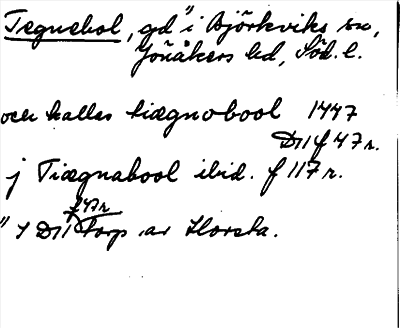 Tegnebol, gd" i Björkviks sn,
Jönåkers hd, Söd. l.
och kalles tiægnobool 1447
D11 f 47 r.
j Tiægnabool ibid. f 117 r.
f 47r
" 1 D11 Torp av Horsta.